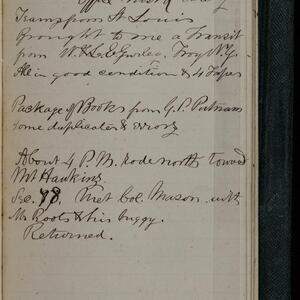 Office
Teamspoon St Louis
brought to me a Transit
from W. & L. E. Gurley. Troy N.Y.
All in good condition & 4 Tapes
Package of Books from G. P. Putnam
some duplicates & errors
About 4 P. M. rode north toward
Mt Hawkins.
Sec. 98. Met Col. Mason with
Mr Roots & his buggy.
Returned.